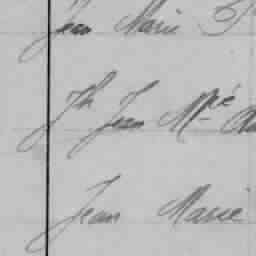 Jean Marie
Jh Jean Mie
Jean Marie